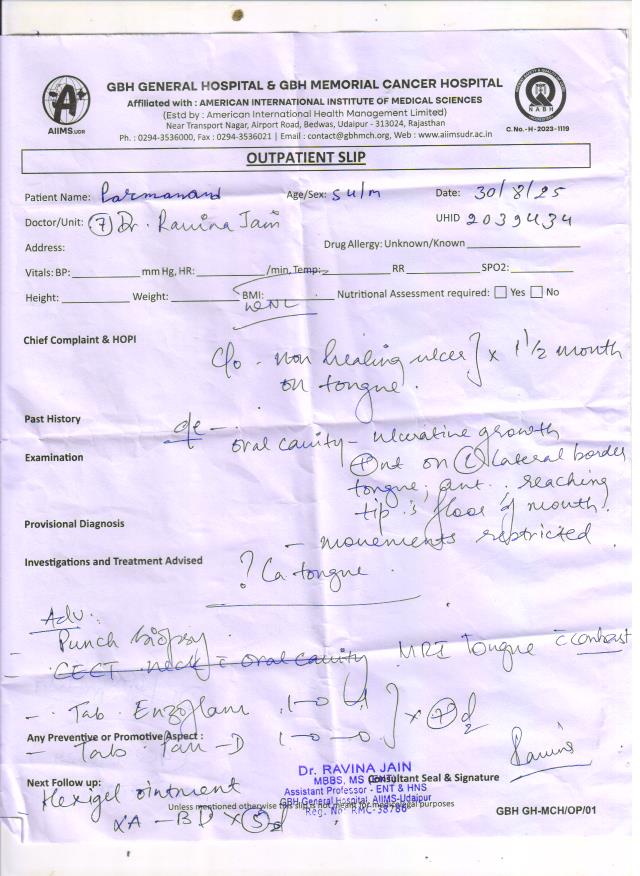 AIIMS.UDR
GBH GENERAL HOSPITAL & GBH MEMORIAL CANCER HOSPITAL
Affiliated with : AMERICAN INTERNATIONAL INSTITUTE OF MEDICAL SCIENCES
(Estd by : American International Health Management Limited)
Near Transport Nagar, Airport Road, Bedwas, Udaipur - 313024, Rajasthan
Ph. : 0294-3536000, Fax : 0294-3536021 | Email : contact@gbhmch.org, Web : www.aiimsudr.ac.in
NABH
C.No.-H-2023-1119
OUTPATIENT SLIP
Patient Name: Parmanand Age/Sex: 54/m Date: 30/8/25
Doctor/Unit: (7) Dr. Ravina Jain UHID 2039434
Address: Drug Allergy: Unknown/Known
Vitals: BP: mm Hg, HR: /min, Temp: RR SPO2:
Height: Weight: BMI: Nutritional Assessment required: Yes No
Chief Complaint & HOPI
C/o - non healing ulcer } x 1 1/2 month
on tongue.
Past History
o/e -
oral cavity - ulcerative growth
Examination
(+)nt on (L) lateral border
tongue, ant. reaching
tip & floor of mouth.
Provisional Diagnosis
- movements restricted
Investigations and Treatment Advised
? Ca tongue.
Adv.
- Punch biopsy
- CECT neck c̄ oral cavity MRI Tongue c̄ contrast
- Tab. Enzoflam 1-0-1 } x (7)d
Any Preventive or Promotive Aspect :
- Tab. Pan-D 1-0-0
Dr. RAVINA JAIN
MBBS, MS (ENT)
Consultant Seal & Signature
Assistant Professor - ENT & HNS
GBH General Hospital, AIIMS-Udaipur
Reg. No. RMC-38786
Next Follow up:
Hexigel ointment
Unless mentioned otherwise this slip is not meant for medicolegal purposes
LA - BD x (5)d
GBH GH-MCH/OP/01